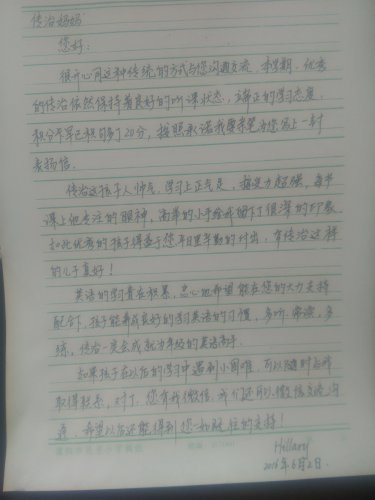 传治妈妈
您好：
很开心用这种传统的方式与您沟通交流，本学期，优秀
的传治依然保持着良好的听课状态，端正的学习态度，
积分早早已积够了20分，按照承诺我要亲笔为您写上一封
表扬信。
传治这孩子人帅气，学习上正气足，接受力超强，每节
课上他专注的眼神，高举的小手给我留下了很深的印象
如此优秀的孩子得益于您平日里辛勤的付出，有传治这样
的儿子真好！
英语的学习贵在积累，忠心地希望能在您的大力支持
配合下，孩子能养成良好的学习英语的习惯，多听、常读、多
练，传治一定会成就为年级的英语高手。
如果孩子在以后的学习中遇到小困难，可以随时与我
取得联系，对了，您有我微信，我们还可以微信交流沟
通，希望以后还能得到您一如既往的支持！
Hillary
2016年6月2日.